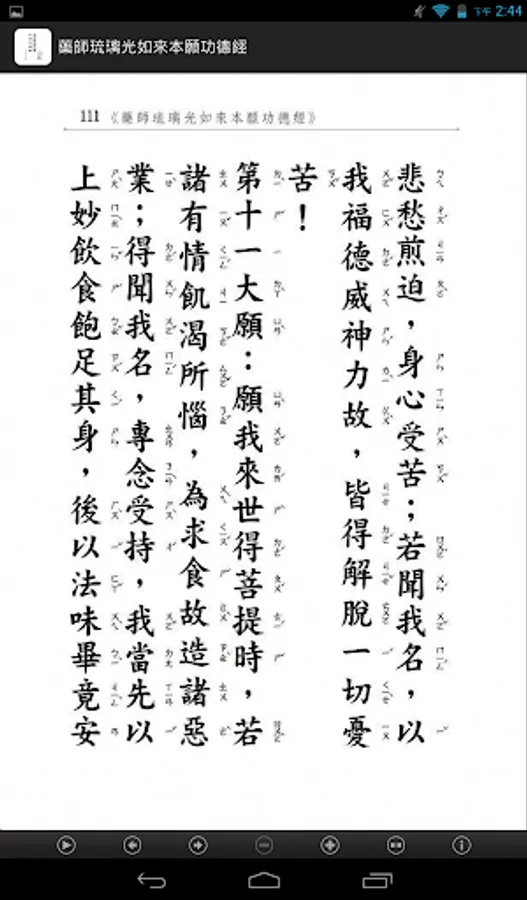 下午 2:44
藥師琉璃光如來本願功德經
111 《藥師琉璃光如來本願功德經》
悲愁煎迫，身心受苦；若聞我名，以
我福德威神力故，皆得解脫一切憂
苦！
第十一大願：願我來世得菩提時，若
諸有情飢渴所惱，為求食故造諸惡
業；得聞我名，專念受持，我當先以
上妙飲食飽足其身，後以法味畢竟安